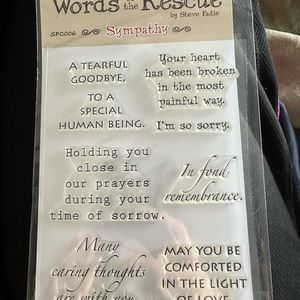 Words to the Rescue
by Steve Fadie
SFC006
Sympathy
A TEARFUL
GOODBYE,
TO A
SPECIAL
HUMAN BEING.
Your heart
has been broken
in the most
painful way.
I'm so sorry.
Holding you
close in
our prayers
during your
time of sorrow.
In fond
remembrance.
Many
caring thoughts
are with you
MAY YOU BE
COMFORTED
IN THE LIGHT
OF LOVE